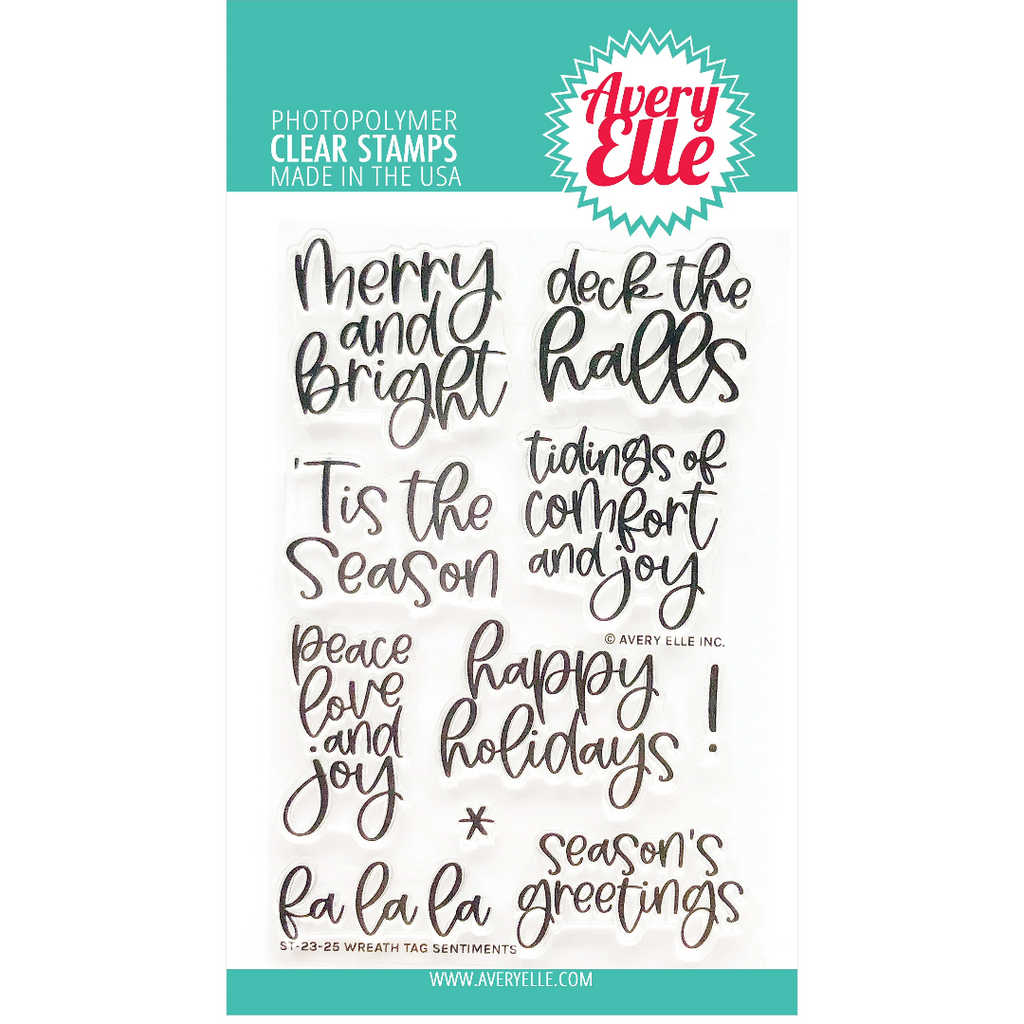 PHOTOPOLYMER
CLEAR STAMPS
MADE IN THE USA
Avery
Elle
merry
and
Bright
deck the
halls
'Tis the
Season
tidings of
comfort
and joy
© AVERY ELLE INC.
peace
love
and
joy
happy
holidays
!
*
season's
greetings
fa la la
ST-23-25 WREATH TAG SENTIMENTS
WWW.AVERYELLE.COM